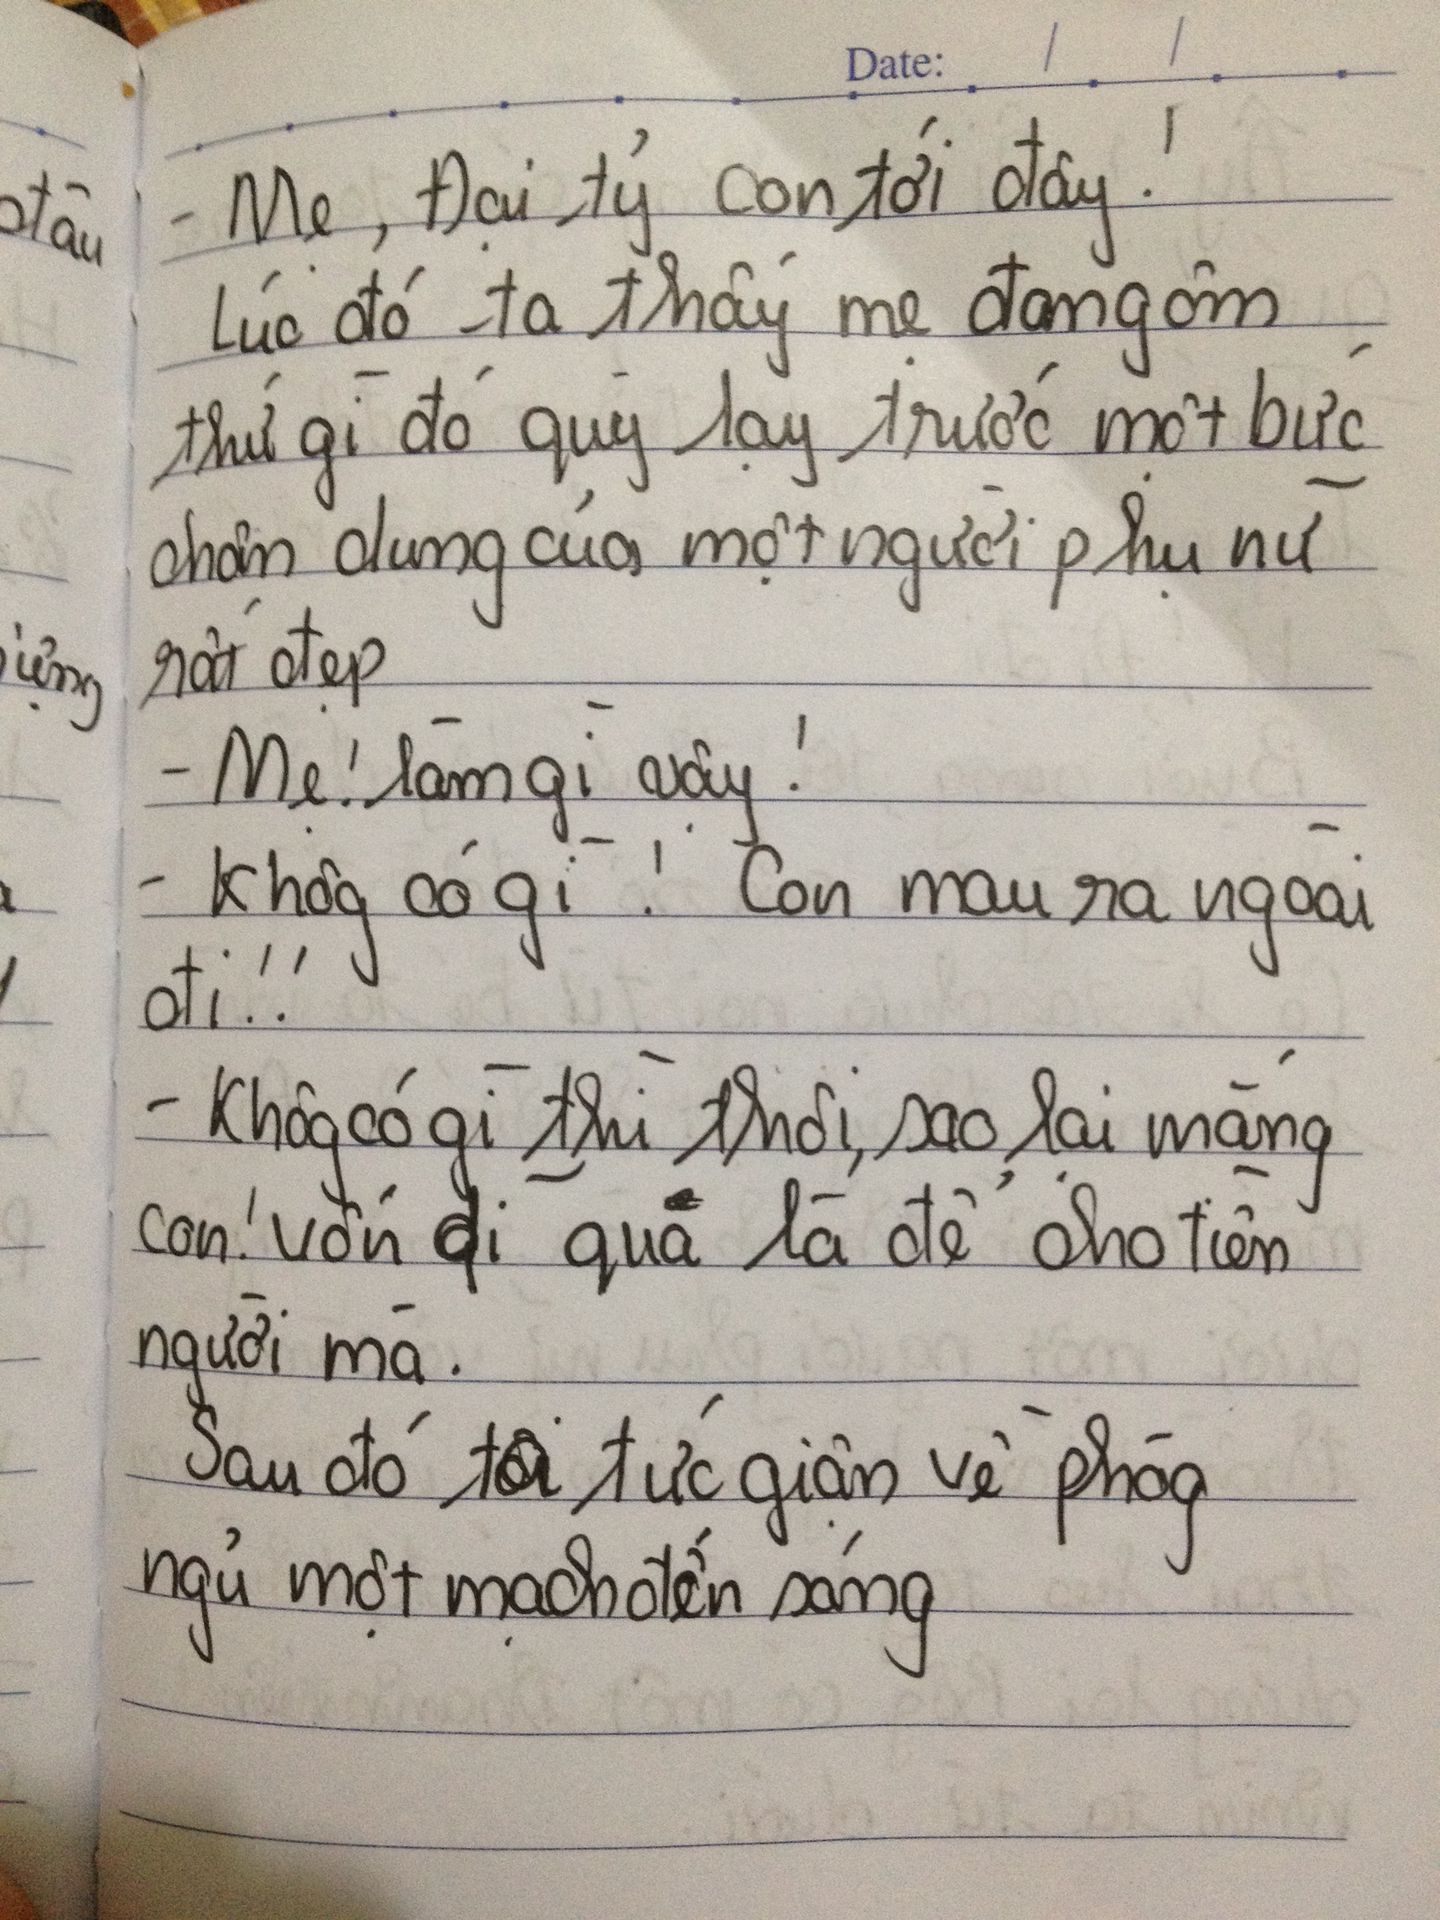 Date: / /
- Mẹ, Đại tỷ con tới đây!
Lúc đó ta thấy mẹ đang ôm
thứ gì đó quỳ lạy trước một bức
chân dung của một người phụ nữ
rất đẹp
- Mẹ! làm gì vậy!
- Khôg có gì! Con mau ra ngoài
đi!!
- Khôg có gì thì thôi, sao lai mắng
con! vốn dĩ quà là để cho tiên
người mà.
Sau đó tôi tức giận về phòg
ngủ một mạch đến sáng